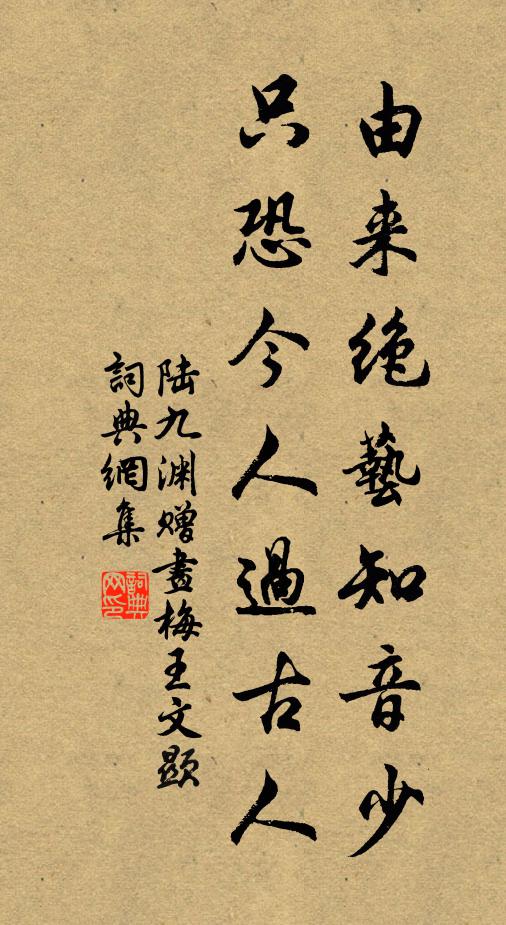 由来絶藝知音少
只恐今人過古人
陆九渊赠畫梅王文顯
詞典網集
詞典网印